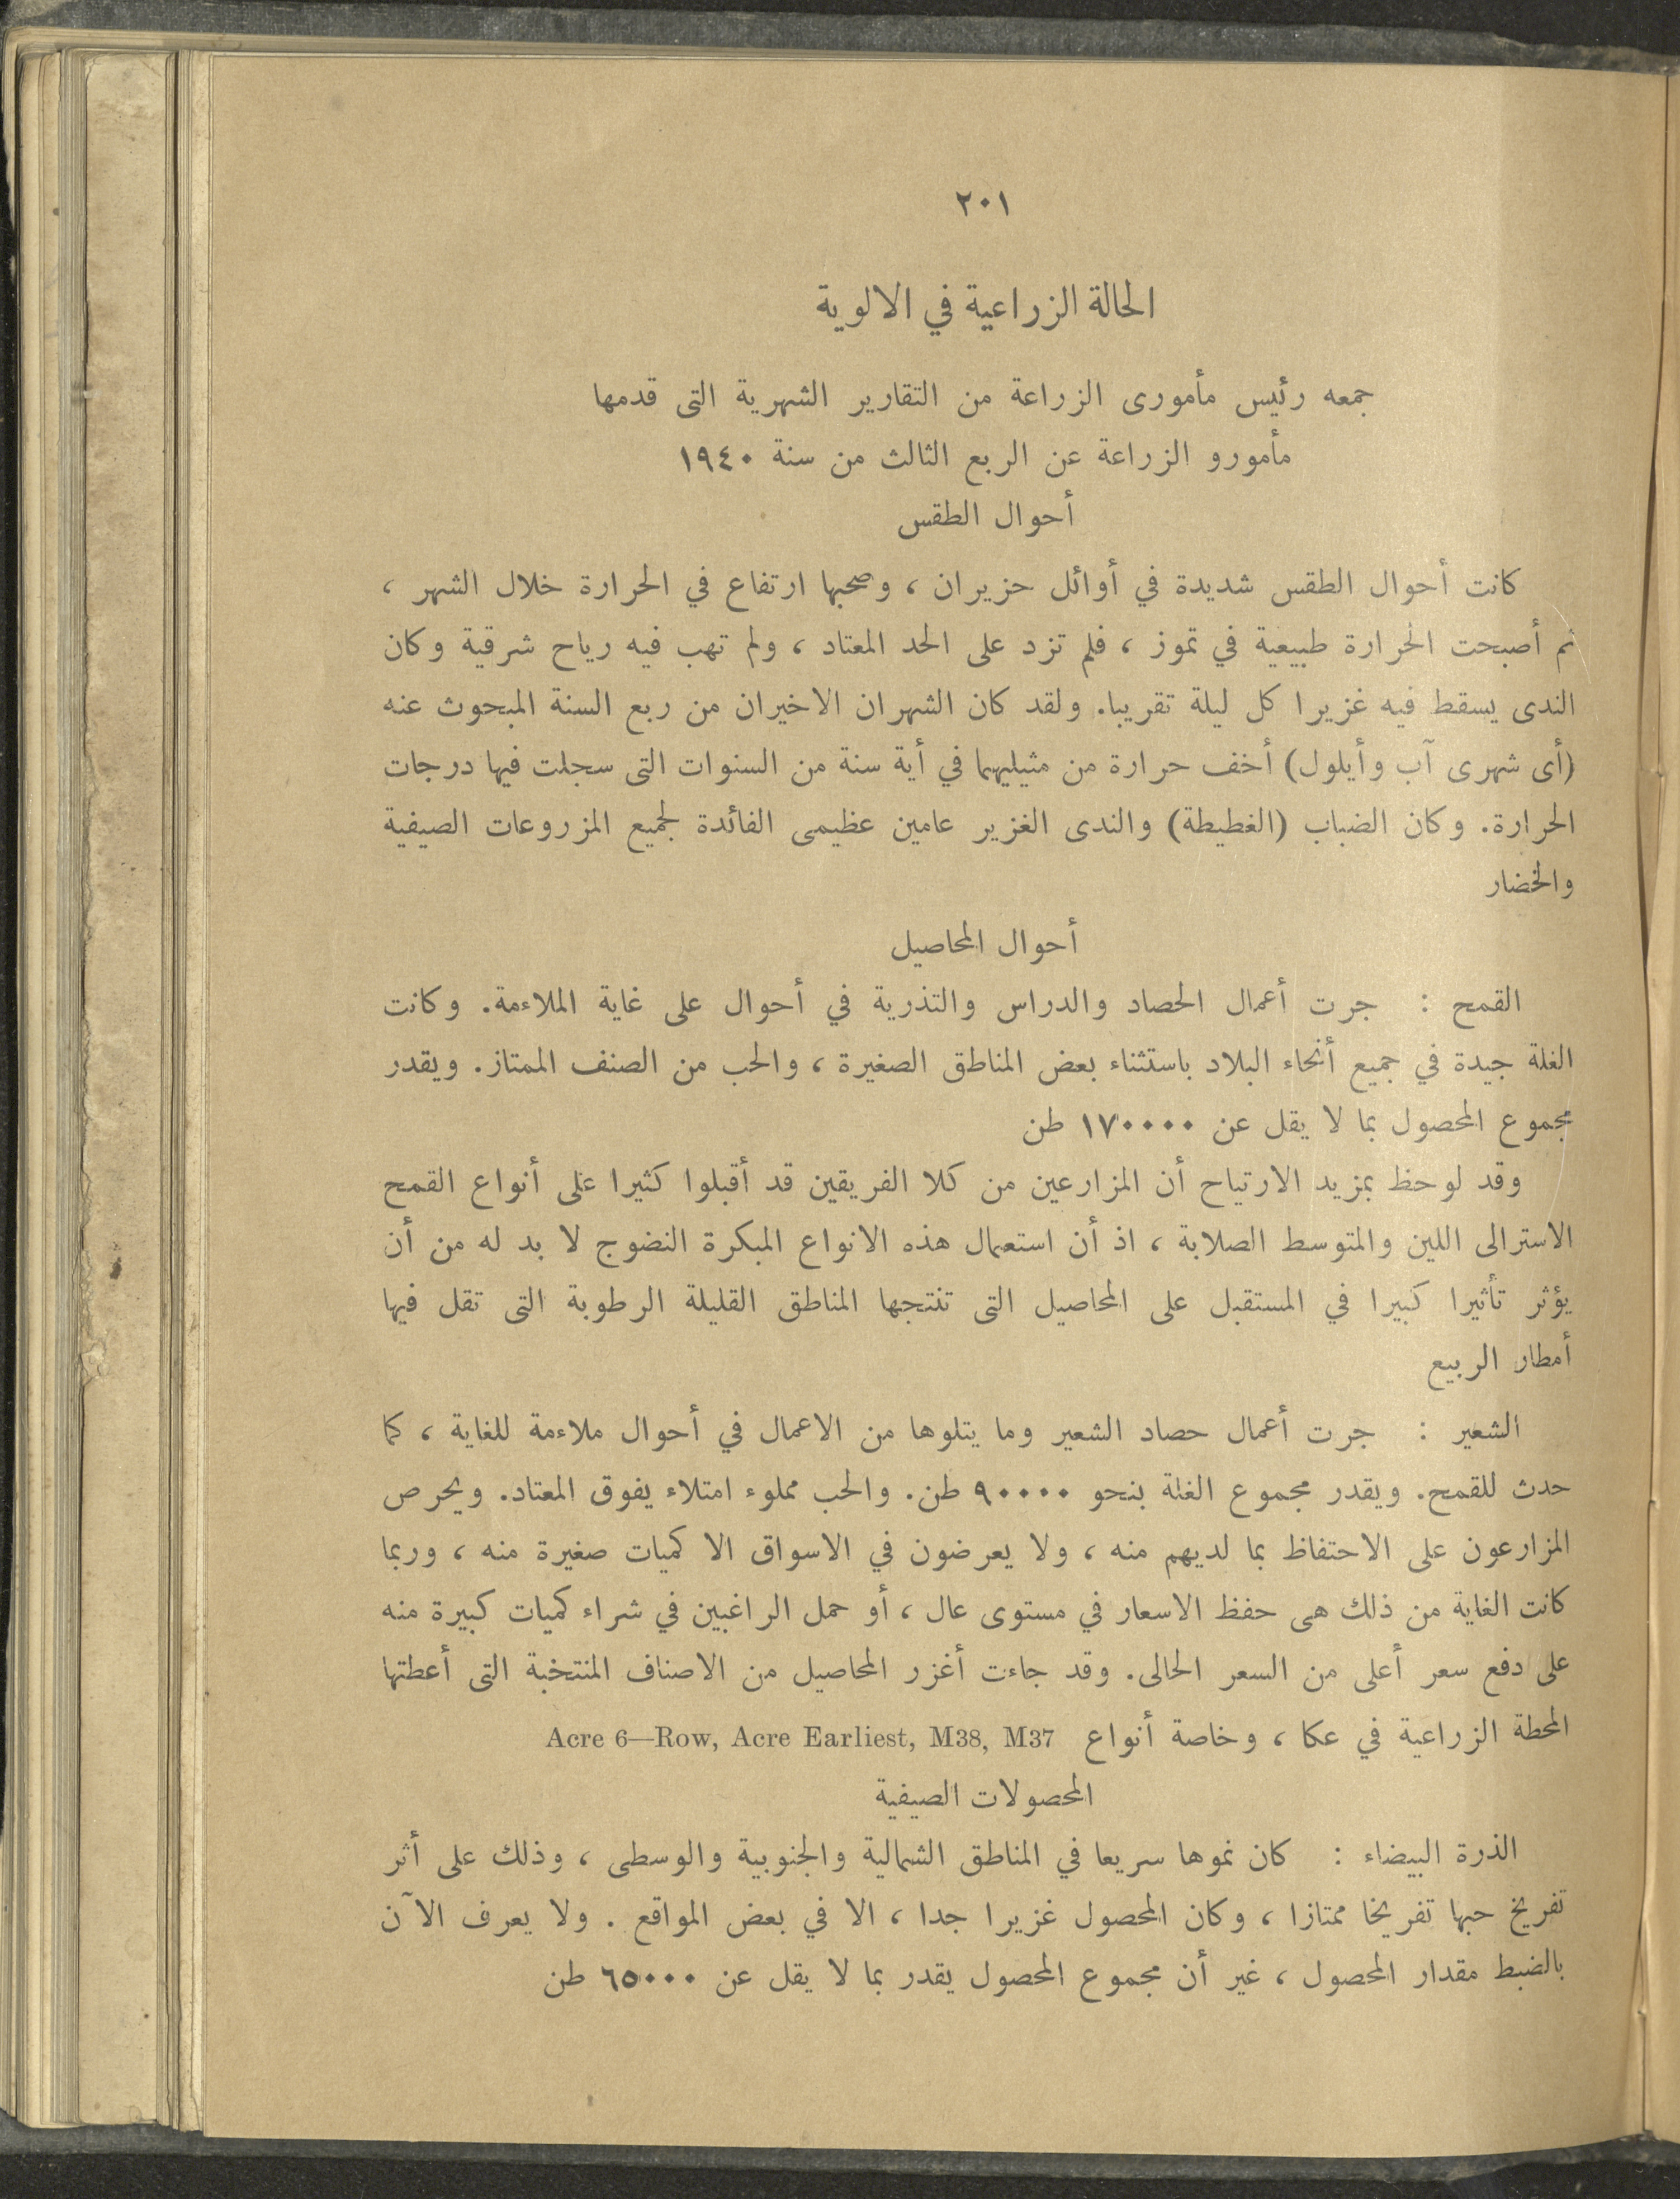 ٢٠١
الحالة الزراعية في الالوية
جمعه رئيس مأمورى الزراعة من التقارير الشهرية التى قدمها
مأمورو الزراعة عن الربع الثالث من سنة ١٩٤٠
أحوال الطقس
كانت أحوال الطقس شديدة في أوائل حزيران ، وصحبها ارتفاع في الحرارة خلال الشهر ،
ثم أصبحت الحرارة طبيعية في تموز ، فلم تزد على الحد المعتاد ، ولم تهب فيه رياح شرقية وكان
الندى يسقط فيه غزيرا كل ليلة تقريبا. ولقد كان الشهران الاخيران من ربع السنة المبحوث عنه
(أى شهرى آب وأيلول) أخف حرارة من مثيليهما في أية سنة من السنوات التى سجلت فيها درجات
الحرارة. وكان الضباب (الغطيطة) والندى الغزير عامين عظيمى الفائدة لجميع المزروعات الصيفية
والخضار
أحوال المحاصيل
القمح : جرت أعمال الحصاد والدراس والتذرية في أحوال على غاية الملاءمة. وكانت
الغلة جيدة في جميع أنحاء البلاد باستثناء بعض المناطق الصغيرة ، والحب من الصنف الممتاز. ويقدر
مجموع المحصول بما لا يقل عن ١٧٠٠٠٠ طن
وقد لوحظ بمزيد الارتياح أن المزارعين من كلا الفريقين قد أقبلوا كثيرا على أنواع القمح
الاسترالى اللين والمتوسط الصلابة ، اذ أن استعمال هذه الانواع المبكرة النضوج لا بد له من أن
يؤثر تأثيرا كبيرا في المستقبل على المحاصيل التى تنتجها المناطق القليلة الرطوبة التى تقل فيها
أمطار الربيع
الشعير : جرت أعمال حصاد الشعير وما يتلوها من الاعمال في أحوال ملاءمة للغاية ، كما
حدث للقمح. ويقدر مجموع الغلة بنحو ٩٠٠٠٠ طن. والحب مملوء امتلاء يفوق المعتاد. ويحرص
المزارعون على الاحتفاظ بما لديهم منه ، ولا يعرضون في الاسواق الا كميات صغيرة منه ، وربما
كانت الغاية من ذلك هى حفظ الاسعار في مستوى عال ، أو حمل الراغبين في شراء كميات كبيرة منه
على دفع سعر أعلى من السعر الحالى. وقد جاءت أغزر المحاصيل من الاصناف المنتخبة التى أعطتها
المحطة الزراعية في عكا ، وخاصة أنواع Acre 6—Row, Acre Earliest, M38, M37
المحصولات الصيفية
الذرة البيضاء : كان نموها سريعا في المناطق الشمالية والجنوبية والوسطى ، وذلك على أثر
تفريخ حبها تفريخا ممتازا ، وكان المحصول غزيرا جدا ، الا في بعض المواقع . ولا يعرف الآن
بالضبط مقدار المحصول ، غير أن مجموع المحصول يقدر بما لا يقل عن ٦٥٠٠٠ طن